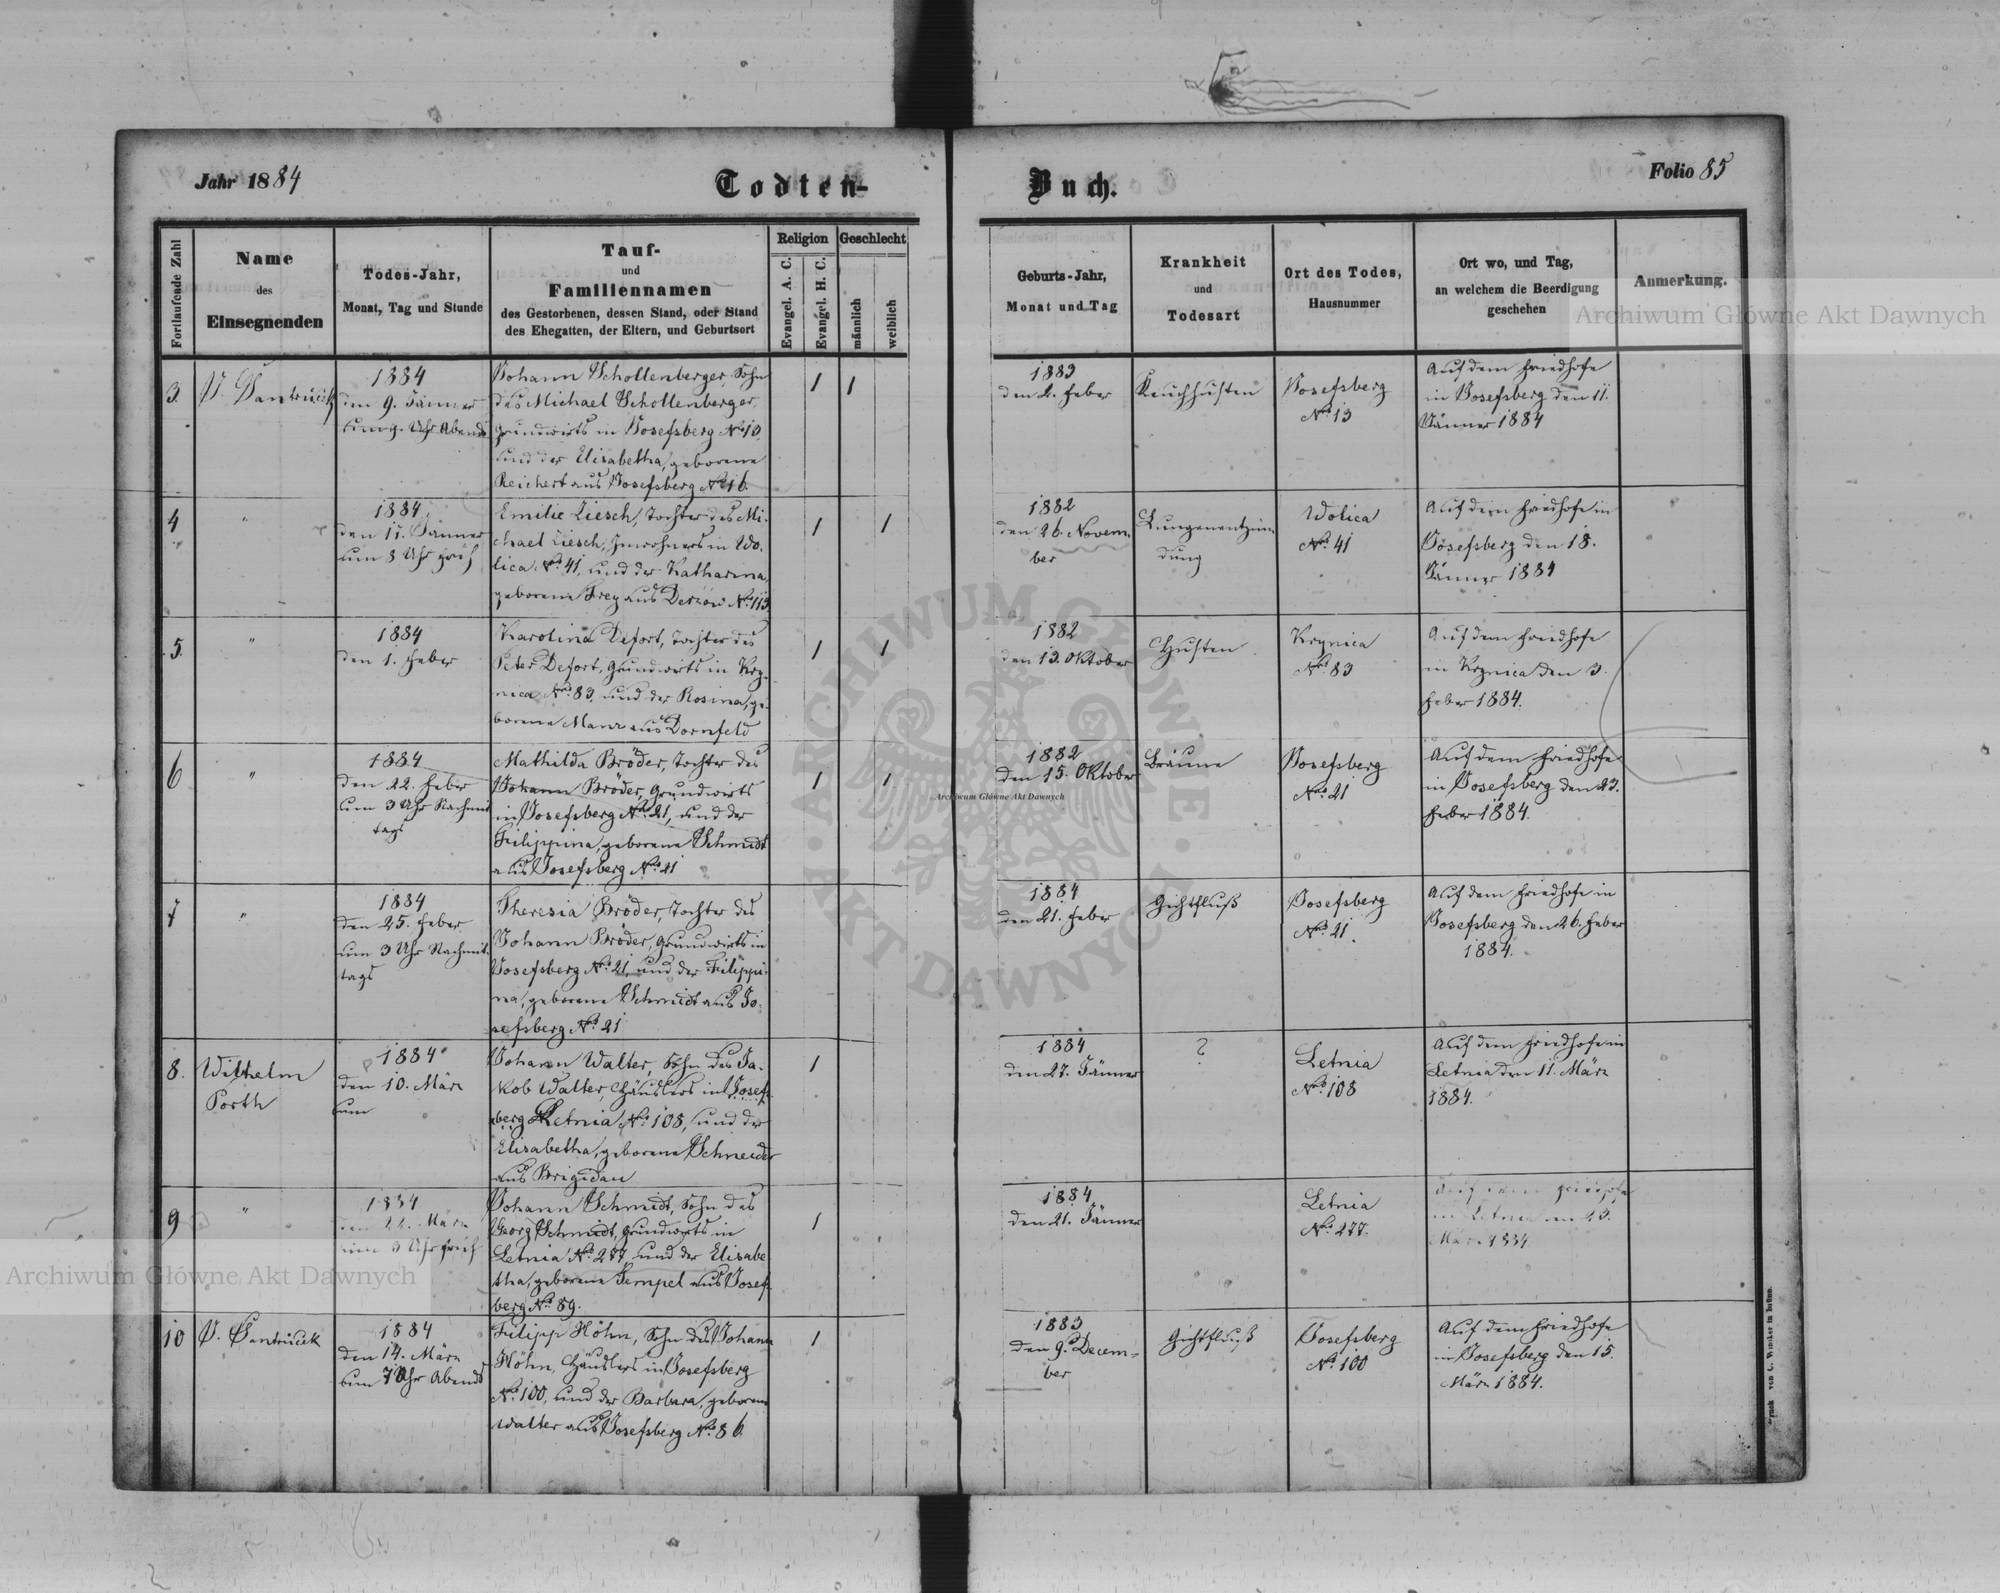 Jahr 1884
Todten-
Buch.
Folio 85
Fortlaufende Zahl
Name
des
Einsegnenden
Todes-Jahr,
Monat, Tag und Stunde
Tauf-
und
Familiennamen
des Gestorbenen, dessen Stand, oder Stand
des Ehegatten, der Eltern, und Geburtsort
Religion
Evangel. A. C.
Evangel. H. C.
Geschlecht
männlich
weiblich
Geburts-Jahr,
Monat und Tag
Krankheit
und
Todesart
Ort des Todes,
Hausnummer
Ort wo, und Tag,
an welchem die Beerdigung
geschehen
Anmerkung.
3.
1884
den 9. Jänner
um 9. Uhr Abends
Johann Schollenberger, Sohn
des Michael Schollenberger,
Grundwirts in Josefsberg No 13,
und der Elisabetha, geborene
Reichert aus Josefsberg No 16.
1
1
1883
den 2. Feber
Keuchhusten
Josefsberg
No 13
Auf dem Friedhofe
in Josefsberg den 11.
Jänner 1884
4
"
1884
den 17. Jänner
um 8 Uhr früh
Emilie Liesch, Tochter des Mi-
chael Liesch, Inwohners in Wo-
lica No 41, und der Katharina,
geborene Frey aus Derzów No 113
1
1
1882
den 26. Novem-
ber
Lungenentzün-
dung
Wolica
No 41
Auf dem Friedhofe in
Josefsberg den 18.
Jänner 1884
5.
"
1884
den 1. Feber
Karolina Defort, Tochter des
Peter Defort, Grundwirts in Kry-
nica No 83, und der Rosina, ge-
borene Manz aus Dornfeld
1
1
1882
den 13. Oktober
Husten
Krynica
No 83
Auf dem Friedhofe
in Krynica den 3.
Feber 1884.
6
"
1884
den 22. Feber
um 3 Uhr Nachmit
tags
Mathilda Bröder, Tochter des
Johann Bröder, Grundwirts
in Josefsberg No 21, und der
Filippina, geborene Schmidt
aus Josefsberg No 21
1
1
1882
den 15. Oktober
Bräune
Josefsberg
No 21
Auf dem Friedhofe
in Josefsberg den 23.
Feber 1884.
7
"
1884
den 25. Feber
um 3 Uhr Nachmit
tags
Theresia Bröder, Tochter des
Johann Bröder, Grundwirts in
Josefsberg No 21, und der Filippi-
na, geborene Schmidt aus Jo-
sefsberg No 21
1884
den 21. Feber
Gichtfluß
Josefsberg
No 21
Auf dem Friedhofe in
Josefsberg den 26. Feber
1884.
8.
Wilhelm
Porth
1884
den 10. März
um
Johann Walter, Sohn des Ja-
kob Walter, Häuslers in Josefs-
berg Letnia No 108, und der
Elisabetha, geborene Schneider
aus Brigidau
1
1884
den 27. Jänner
?
Letnia
No 108
Auf dem Friedhofe in
Letnia den 11. März
1884.
9
"
1884
den 22. März
um 9 Uhr früh
Johann Schmidt, Sohn des
Georg Schmidt, Grundwirts in
Letnia No 277, und der Elisabe-
tha, geborene Tempel aus Josefs-
berg No 89.
1
1884
den 21. Jänner
Letnia
No 277.
Auf dem Friedhofe
in Letnia den 23.
März 1884
10
1884
den 14. März
um 7 Uhr Abends
Filipp Höhn, Sohn des Johann
Höhn, Häuslers in Josefsberg
No 100, und der Barbara, geborene
Walter aus Josefsberg No 86.
1
1883
den 9. Decem-
ber
Gichtfluß
Josefsberg
No 100
Auf dem Friedhofe
in Josefsberg den 15.
März 1884.
Archiwum Główne Akt Dawnych
Archiwum Główne Akt Dawnych
Archiwum Główne Akt Dawnych
ARCHIWUM GŁÓWNE · AKT DAWNYCH ·
Druck von C. Winiker in Brünn.